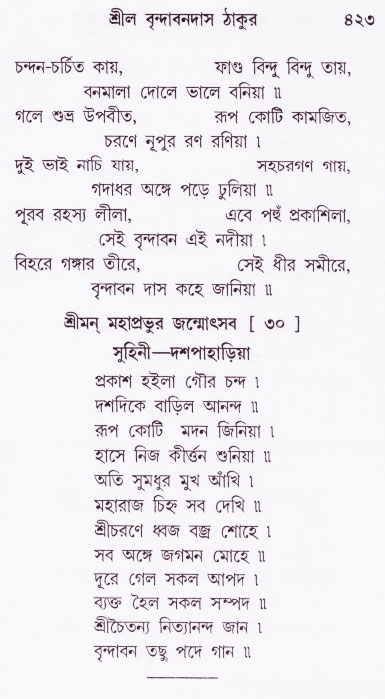 শ্রীল বৃন্দাবনদাস ঠাকুর ৪২৩
চন্দন-চর্চিত কায়, ফাগু বিন্দু বিন্দু তায়,
বনমালা দোলে ভালে বনিয়া ॥
গলে শুভ্র উপবীত, রূপ কোটি কামজিত,
চরণে নূপুর রণ রণিয়া ৷
দুই ভাই নাচি যায়, সহচরগণ গায়,
গদাধর অঙ্গে পড়ে ঢুলিয়া ॥
পূরব রহস্য লীলা, এবে পহুঁ প্রকাশিলা,
সেই বৃন্দাবন এই নদীয়া ৷
বিহরে গঙ্গার তীরে, সেই ধীর সমীরে,
বৃন্দাবন দাস কহে জানিয়া ॥
শ্রীমন্ মহাপ্রভুর জন্মোৎসব [ ৩০ ]
সুহিনী—দশপাহাড়িয়া
প্রকাশ হইলা গৌর চন্দ ৷
দশদিকে বাড়িল আনন্দ ॥
রূপ কোটি মদন জিনিয়া ৷
হাসে নিজ কীর্ত্তন শুনিয়া ॥
অতি সুমধুর মুখ আঁখি ৷
মহারাজ চিহ্ন সব দেখি ॥
শ্রীচরণে ধ্বজ বজ্র শোহে ৷
সব অঙ্গে জগমন মোহে ॥
দূরে গেল সকল আপদ ৷
ব্যক্ত হৈল সকল সম্পদ ॥
শ্রীচৈতন্য নিত্যানন্দ জান ৷
বৃন্দাবন তছু পদে গান ॥